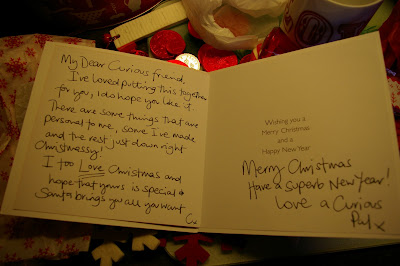 My Dear Curious friend,
I've loved putting this together
for you, I do hope you like it
There are some things that are
personal to me, some I've made
and the rest just down right
Christmassy!
I too Love Christmas and
hope that yours is special &
Santa brings you all you want
Wishing you a
Merry Christmas
and a
Happy New Year
Merry Christmas
Have a Superb New Year!
Love a Curious
Pal x